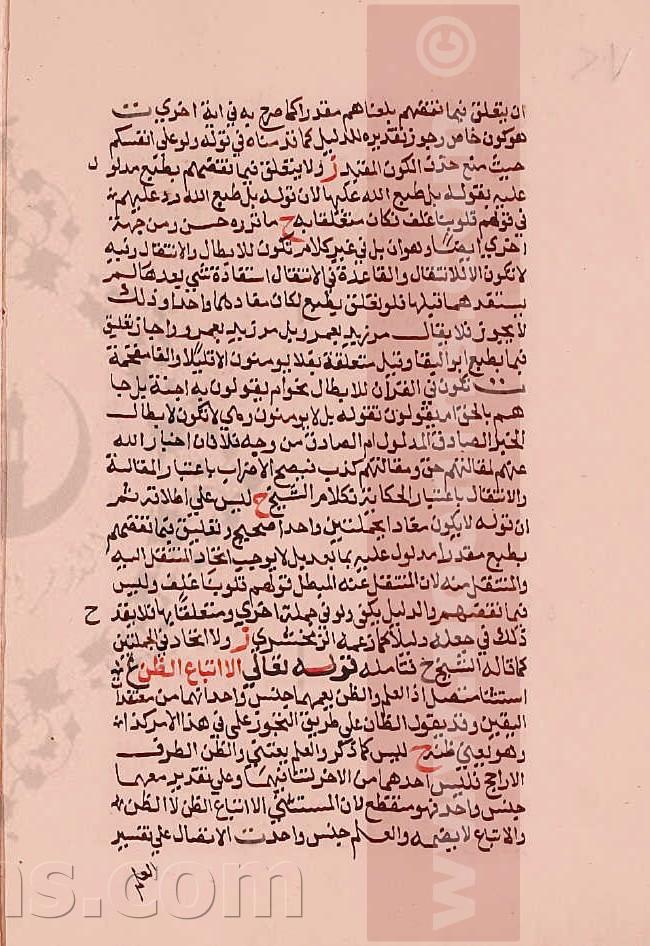 ان يتعلق فبما نقضهم بلعناهم مقدرا كما صرح به في اية اخري ت
هو كون خاص وجوز تقديره للدليل كما قدمناه في قوله ولو علي انفسكم
حيث منع حذف الكون المقيد ز ولا يتعلق فبما نقضهم بطبع مدلول د
عليه بقوله بل طبع الله عليها لان قوله بل طبع الله رد عليهم
في قولهم قلوبنا غلف فكان متعلقا به ح ما قرره حسن ومن جهة
اخري ايضا وهو ان بل في غير كلام تكون للابطال والانتقال وفيه
لا تكون الا للانتقال والقاعدة في الانتقال استفادة شي بعدها لم
يستفد مما قبلها فلو تعلق بطبع لكان مفادهما واحدا وذلك
لا يجوز فلا يقال مر زيد بعمرو بل مر زيد بعمرو واجاز تعليق
فبما بطبع ابو البقا وقيل متعلقة بفلا يومنون الا قليلا والفا مقحمة
ت تكون في القرآن للابطال نحو ام يقولون به جنة بل جا
هم بالحق ام يقولون تقوله بل لا يومنون وهي لا تكون لابطال
الخبر الصادق المدلول ام الصادق من وجه فلا فان اخبار الله
عنهم لمقالتهم حق ومقالتهم كذب فيصح الاضراب باعتبار المقالة
والانتقال باعتبار الحكاية فكلام الشيخ ح ليس علي اطلاقه ثم
ان قوله لا يكون مفاد الجملتين واحدا صحيح وتعليق فبما نقضهم
بطبع مقدرا مدلول عليه بما بعد بل لا يوجب اتحاد المنتقل اليه
والمنتقل منه لان المنتقل عنه المبطل قولهم قلوبنا غلف وليس
فبما نقضهم والدليل يكفي ولو في جملة اخري ومتعلقا بها فلا يقدح
ذلك في جعله دليلا كما زعمه الزمخشري ز ولا اتحاد في الجملتين
كما قاله الشيخ ح فتامله قوله تعالي الا اتباع الظن غ
استثنا متصل اذ العلم والظن يعمهما جنس واحد انهما من معتقدات
اليقين وقد يقول الظان علي طريق التجوز علمي في هذا الامر كذا
وهو يعني ظنه ح ليس كما ذكر والعلم يعني والظن الطرف
الراجح فليس احدهما من الاخر وعلي تقدير معهما
جنس واحد فهو منقطع لان المستثني الا اتباع الظن لا الظن
والاتباع لا يضمه والعلم جنس واحد ت الاتصال علي تفسير
العلم